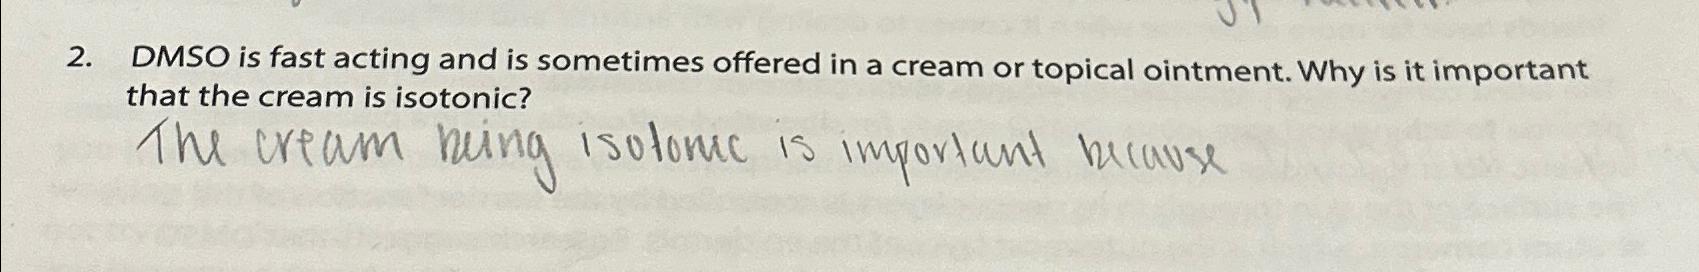 2. DMSO is fast acting and is sometimes offered in a cream or topical ointment. Why is it important
that the cream is isotonic?
The cream being isotonic is important because